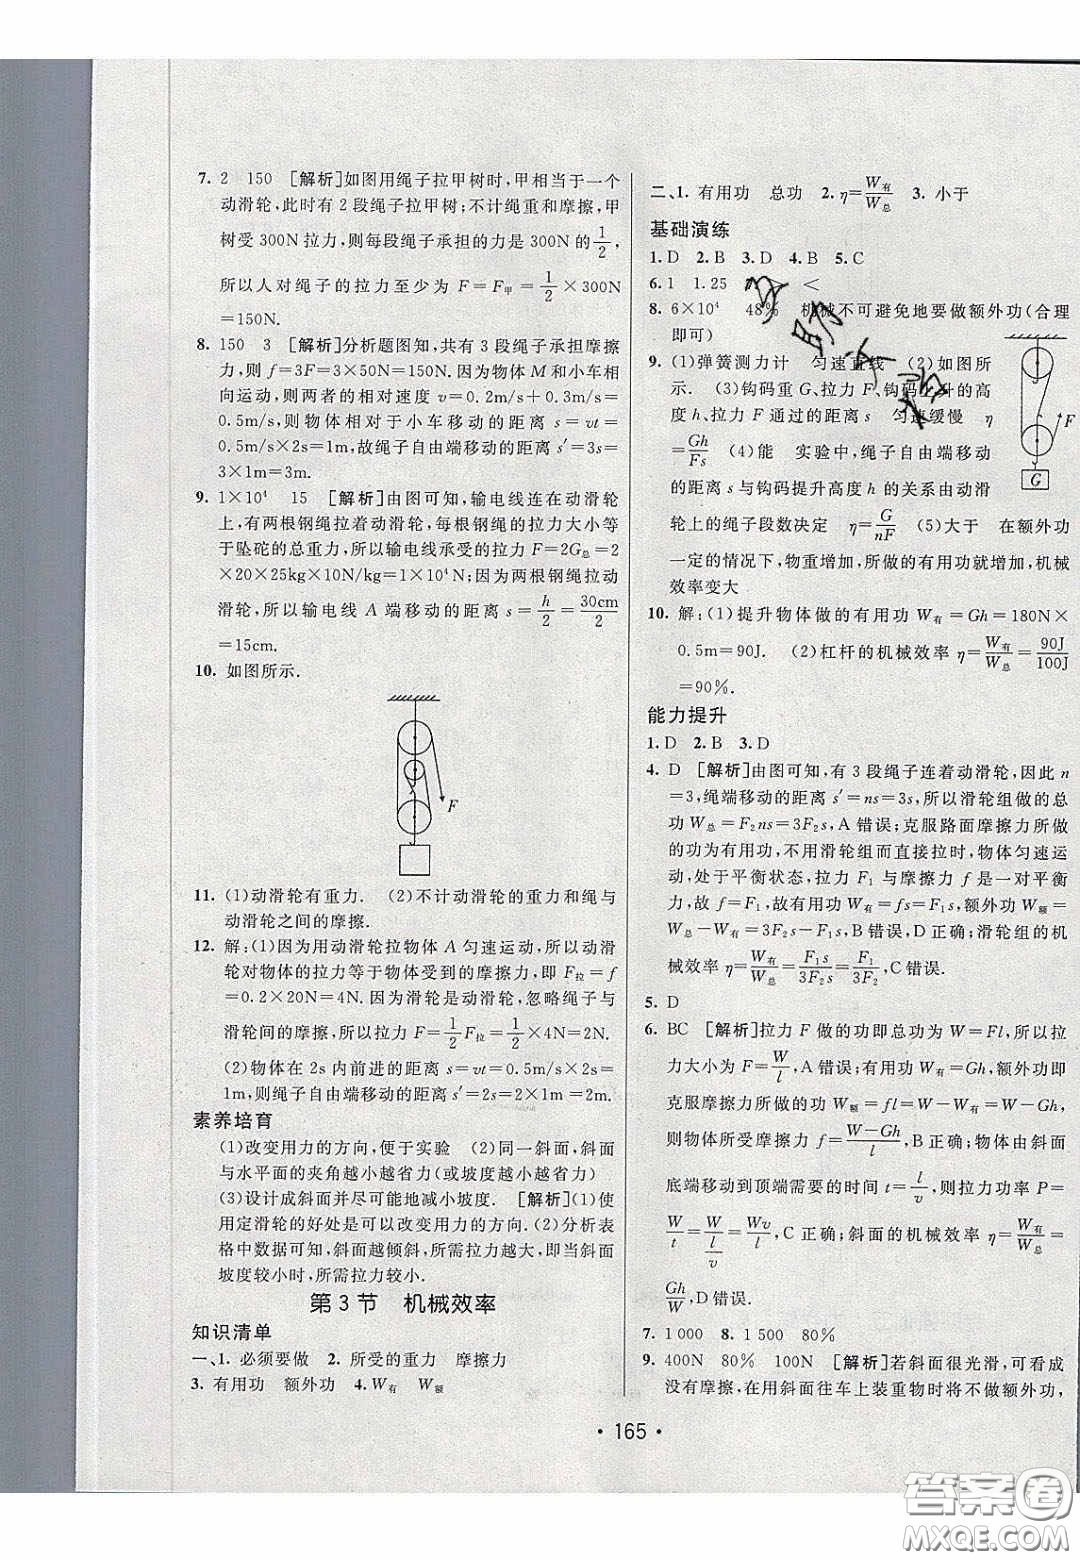 7. 2　150　[解析]如图用绳子拉甲树时,甲相当于一个
动滑轮,此时有 2 段绳子拉甲树;不计绳重和摩擦,甲
树受 300N 拉力,则每段绳子承担的力是 300N 的 1/2,
所以人对绳子的拉力至少为 F=F甲=1/2×300N
=150N.
8. 150　3　[解析]分析题图知,共有 3 段绳子承担摩擦
力,则 f=3F=3×50N=150N. 因为物体 M 和小车相
向运动,则两者的相对速度 v=0.2m/s+0.3m/s=
0.5m/s,则物体相对于小车移动的距离 s=vt=
0.5m/s×2s=1m,故绳子自由端移动的距离 s′=3s=
3×1m=3m.
9. 1×10⁴　15　[解析]由图可知,输电线连在动滑轮
上,有两根钢绳拉着动滑轮,每根钢绳的拉力大小等
于坠砣的总重力,所以输电线承受的拉力 F=2G总=2
×20×25kg×10N/kg=1×10⁴N;因为两根钢绳拉动
滑轮,所以输电线 A 端移动的距离 s=h/2=30cm/2
=15cm.
10. 如图所示.
F
11. (1)动滑轮有重力.　(2)不计动滑轮的重力和绳与
动滑轮之间的摩擦.
12. 解:(1)因为用动滑轮拉物体 A 匀速运动,所以动滑
轮对物体的拉力等于物体受到的摩擦力,即 F拉=f
=0.2×20N=4N. 因为滑轮是动滑轮,忽略绳子与
滑轮间的摩擦,所以拉力 F=1/2F拉=1/2×4N=2N.
(2)物体在 2s 内前进的距离 s=vt=0.5m/s×2s=
1m,则绳子自由端移动的距离 s′=2s=2×1m=2m.
素养培育
(1)改变用力的方向,便于实验　(2)同一斜面,斜面
与水平面的夹角越小越省力(或坡度越小越省力)
(3)设计成斜面并尽可能地减小坡度.　[解析](1)使
用定滑轮的好处是可以改变用力的方向.(2)分析表
格中数据可知,斜面越倾斜,所需拉力越大,即当斜面
坡度较小时,所需拉力较小.
第 3 节　机械效率
知识清单
一、1. 必须要做　2. 所受的重力　摩擦力
3. 有用功　额外功　4. W有　W额
二、1. 有用功　总功　2. η=W有/W总　3. 小于
基础演练
1. D　2. B　3. D　4. B　5. C
6. 1　1.25　　<
8. 6×10⁴　48%　机械不可避免地要做额外功(合理
即可)
9. (1)弹簧测力计　匀速直线　(2)如图所
示.　(3)钩码重 G、拉力 F、钩码上升的高
度 h、拉力 F 通过的距离 s　匀速缓慢　η
=Gh/Fs　(4)能　实验中,绳子自由端移动
的距离 s 与钩码提升高度 h 的关系由动滑
轮上的绳子段数决定　η=G/nF　(5)大于　在额外功
一定的情况下,物重增加,所做的有用功就增加,机械
效率变大
F
G
10. 解:(1)提升物体做的有用功 W有=Gh=180N×
0.5m=90J.　(2)杠杆的机械效率 η=W有/W总=90J/100J
=90%.
能力提升
1. D　2. B　3. D
4. D　[解析]由图可知,有 3 段绳子连着动滑轮,因此 n
=3,绳端移动的距离 s′=ns=3s,所以滑轮组做的总
功 W总=F₂ns=3F₂s,A 错误;克服路面摩擦力所做
的功为有用功,不用滑轮组而直接拉时,物体匀速运
动,处于平衡状态,拉力 F₁ 与摩擦力 f 是一对平衡
力,故 f=F₁,故有用功 W有=fs=F₁s,额外功 W额=
W总-W有=3F₂s-F₁s,B 错误,D 正确;滑轮组的机
械效率 η=W有/W总=F₁s/3F₂s=F₁/3F₂,C 错误.
5. D
6. BC　[解析]拉力 F 做的功即总功为 W=Fl,所以拉
力大小为 F=W/l,A 错误;有用功 W有=Gh,所以额外功即
克服摩擦力所做的功 W额=fl=W-W有=W-Gh,
则物体所受摩擦力 f=W-Gh/l,B 正确;物体由斜面
底端移动到顶端需要的时间 t=l/v,则拉力功率 P=
W/t=W/(l/v)=Wv/l,C 正确;斜面的机械效率 η=W有/W总=
Gh/W,D 错误.
7. 1 000　8. 1 500　80%
9. 400N　80%　100N　[解析]若斜面很光滑,可看成
没有摩擦,在用斜面往车上装重物时将不做额外功,
• 165 •
答案圈
MXQE.COM